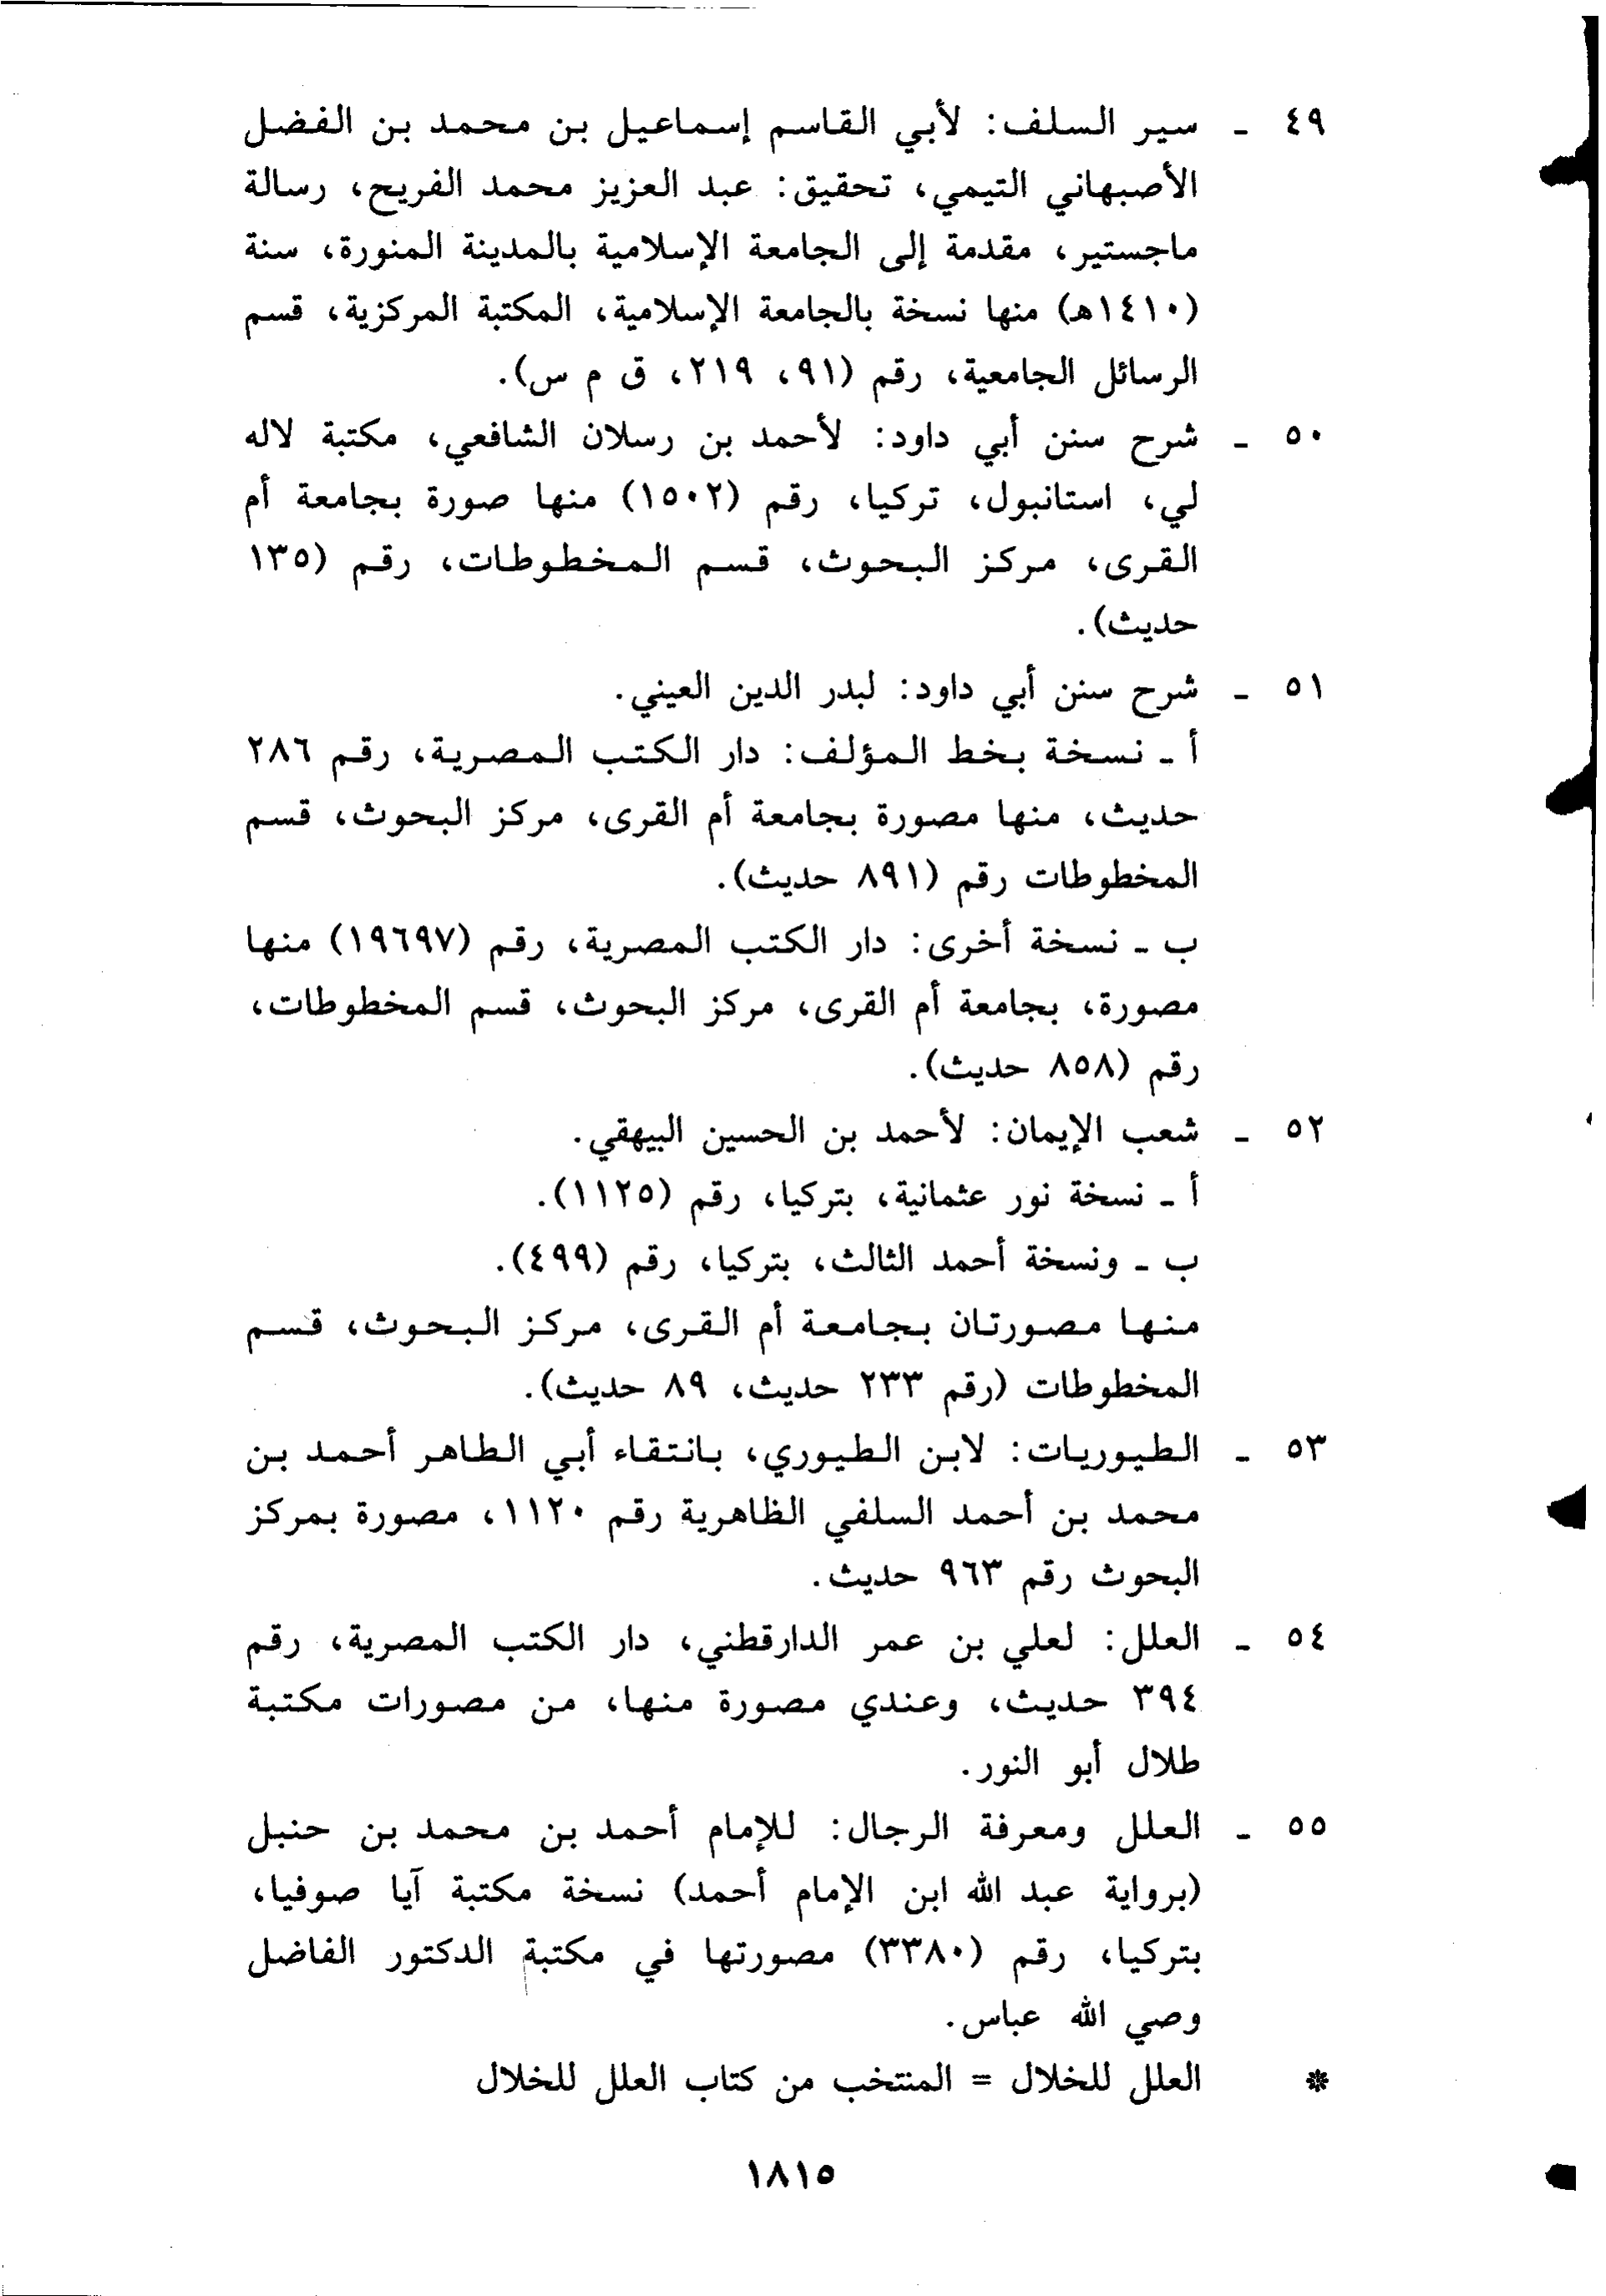 ٤٩ - سير السلف: لأبي القاسم إسماعيل بن محمد بن الفضل
الأصبهاني التيمي، تحقيق: عبد العزيز محمد الفريح، رسالة
ماجستير، مقدمة إلى الجامعة الإسلامية بالمدينة المنورة، سنة
(١٤١٠هـ) منها نسخة بالجامعة الإسلامية، المكتبة المركزية، قسم
الرسائل الجامعية، رقم (٩١، ٢١٩، ق م س).
٥٠ - شرح سنن أبي داود: لأحمد بن رسلان الشافعي، مكتبة لاله
لي، استانبول، تركيا، رقم (١٥٠٢) منها صورة بجامعة أم
القرى، مركز البحوث، قسم المخطوطات، رقم (١٣٥
حديث).
٥١ - شرح سنن أبي داود: لبدر الدين العيني.
أ - نسخة بخط المؤلف: دار الكتب المصرية، رقم ٢٨٦
حديث، منها مصورة بجامعة أم القرى، مركز البحوث، قسم
المخطوطات رقم (٨٩١ حديث).
ب - نسخة أخرى: دار الكتب المصرية، رقم (١٩٦٩٧) منها
مصورة، بجامعة أم القرى، مركز البحوث، قسم المخطوطات،
رقم (٨٥٨ حديث).
٥٢ - شعب الإيمان: لأحمد بن الحسين البيهقي.
أ - نسخة نور عثمانية، بتركيا، رقم (١١٢٥).
ب - ونسخة أحمد الثالث، بتركيا، رقم (٤٩٩).
منها مصورتان بجامعة أم القرى، مركز البحوث، قسم
المخطوطات (رقم ٢٣٣ حديث، ٨٩ حديث).
٥٣ - الطيوريات: لابن الطيوري، بانتقاء أبي الطاهر أحمد بن
محمد بن أحمد السلفي الظاهرية رقم ١١٢٠، مصورة بمركز
البحوث رقم ٩٦٣ حديث.
٥٤ - العلل: لعلي بن عمر الدارقطني، دار الكتب المصرية، رقم
٣٩٤ حديث، وعندي مصورة منها، من مصورات مكتبة
طلال أبو النور.
٥٥ - العلل ومعرفة الرجال: للإمام أحمد بن محمد بن حنبل
(برواية عبد الله ابن الإمام أحمد) نسخة مكتبة آيا صوفيا،
بتركيا، رقم (٣٣٨٠) مصورتها في مكتبة الدكتور الفاضل
وصي الله عباس.
* العلل للخلال = المنتخب من كتاب العلل للخلال
١٨١٥